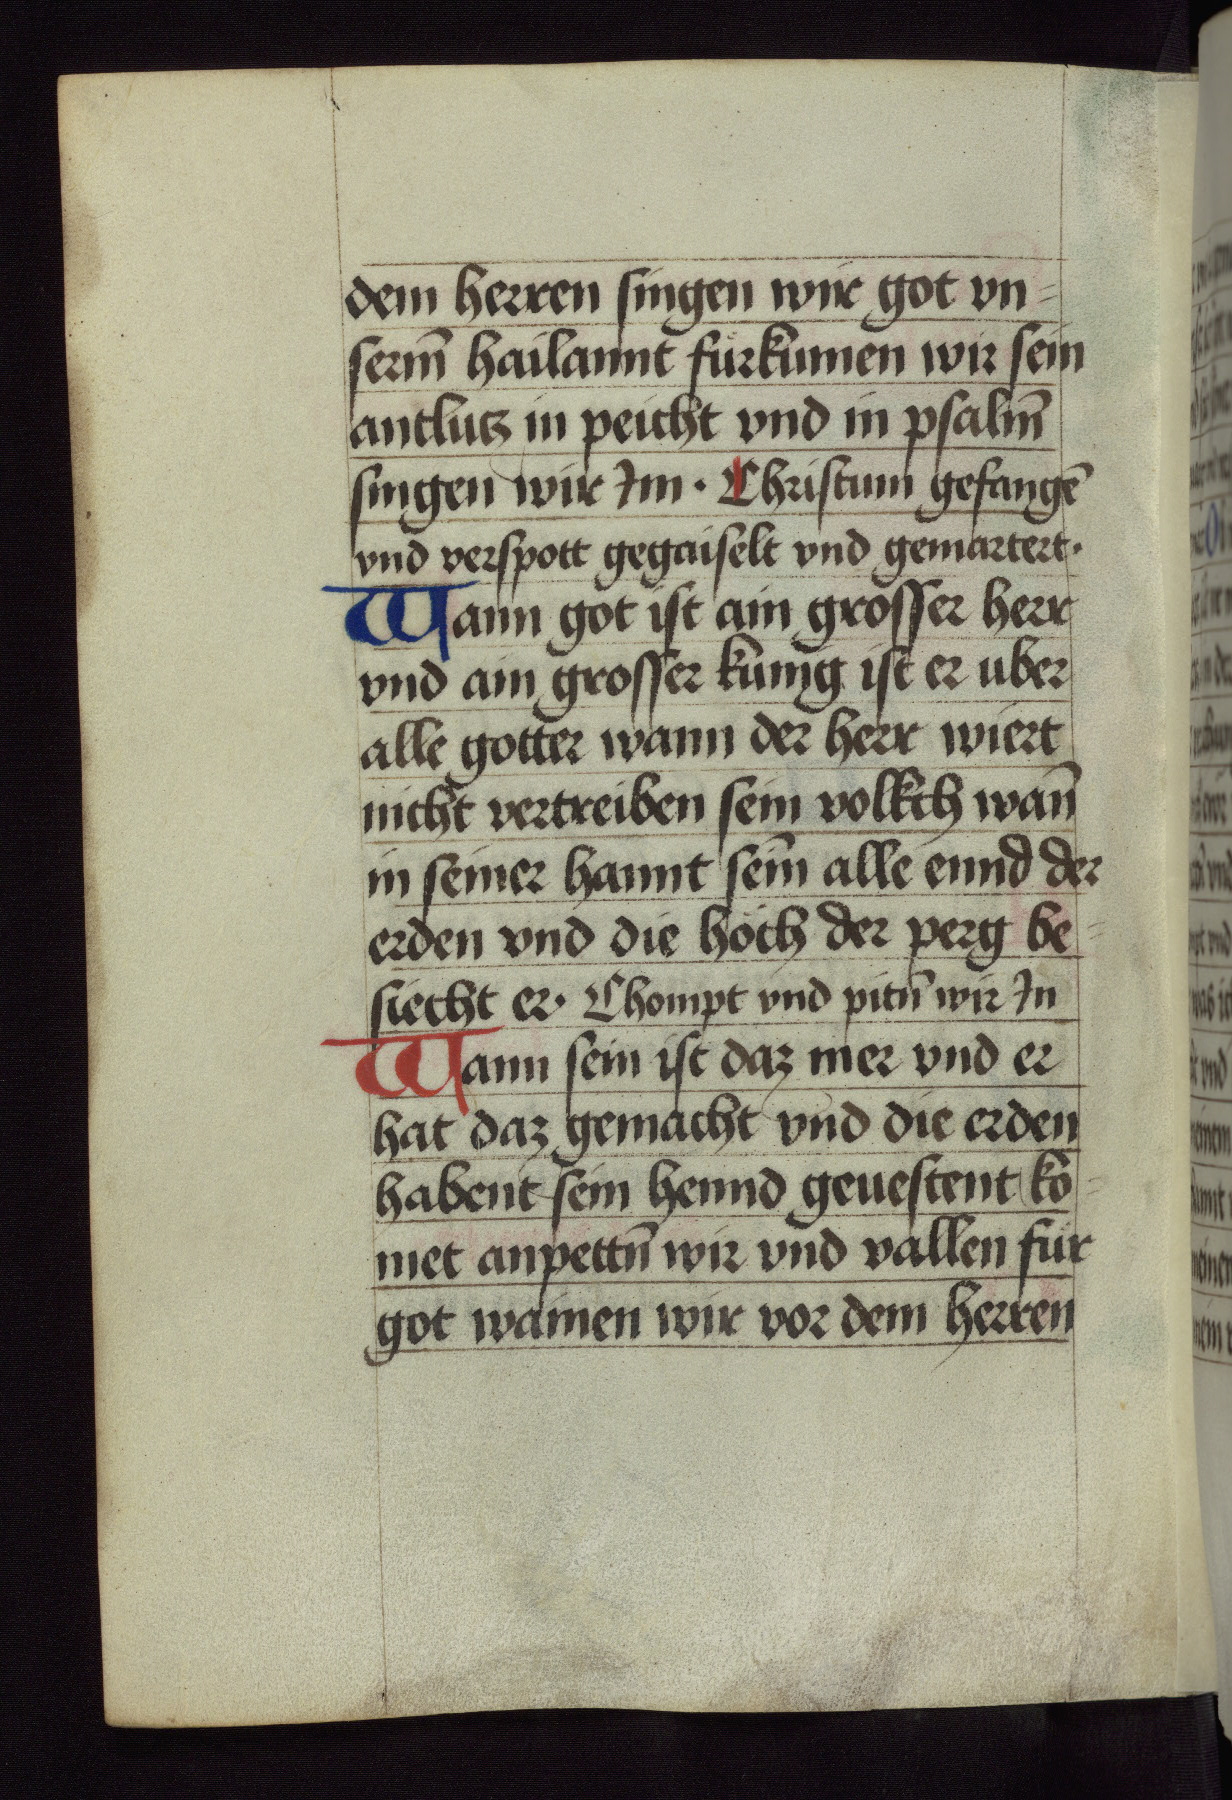 dem herren singen wir got vn=
serm̄ hailannt fürkumen wir sein
antlutz in peicht vnd in psalm̄
singen wir Im · Christum gefangē
vnd verspott gegaiselt vnd gemartert·
Wann got ist ain grosser herr
vnd ain grosser kunig ist er uber
alle gotter wann der herr wiert
nicht vertreiben sein volkch wan̄
in seiner hannt sein alle ennd der
erden vnd die höch der perg be=
siecht er· Chompt vnd pitn̄ wir In
Wann sein ist daz mer vnd er
hat daz gemacht vnd die erden
habent sein hennd geuestent kō=
met anpettn̄ wir vnd vallen für
got wainen wir vor dem herren